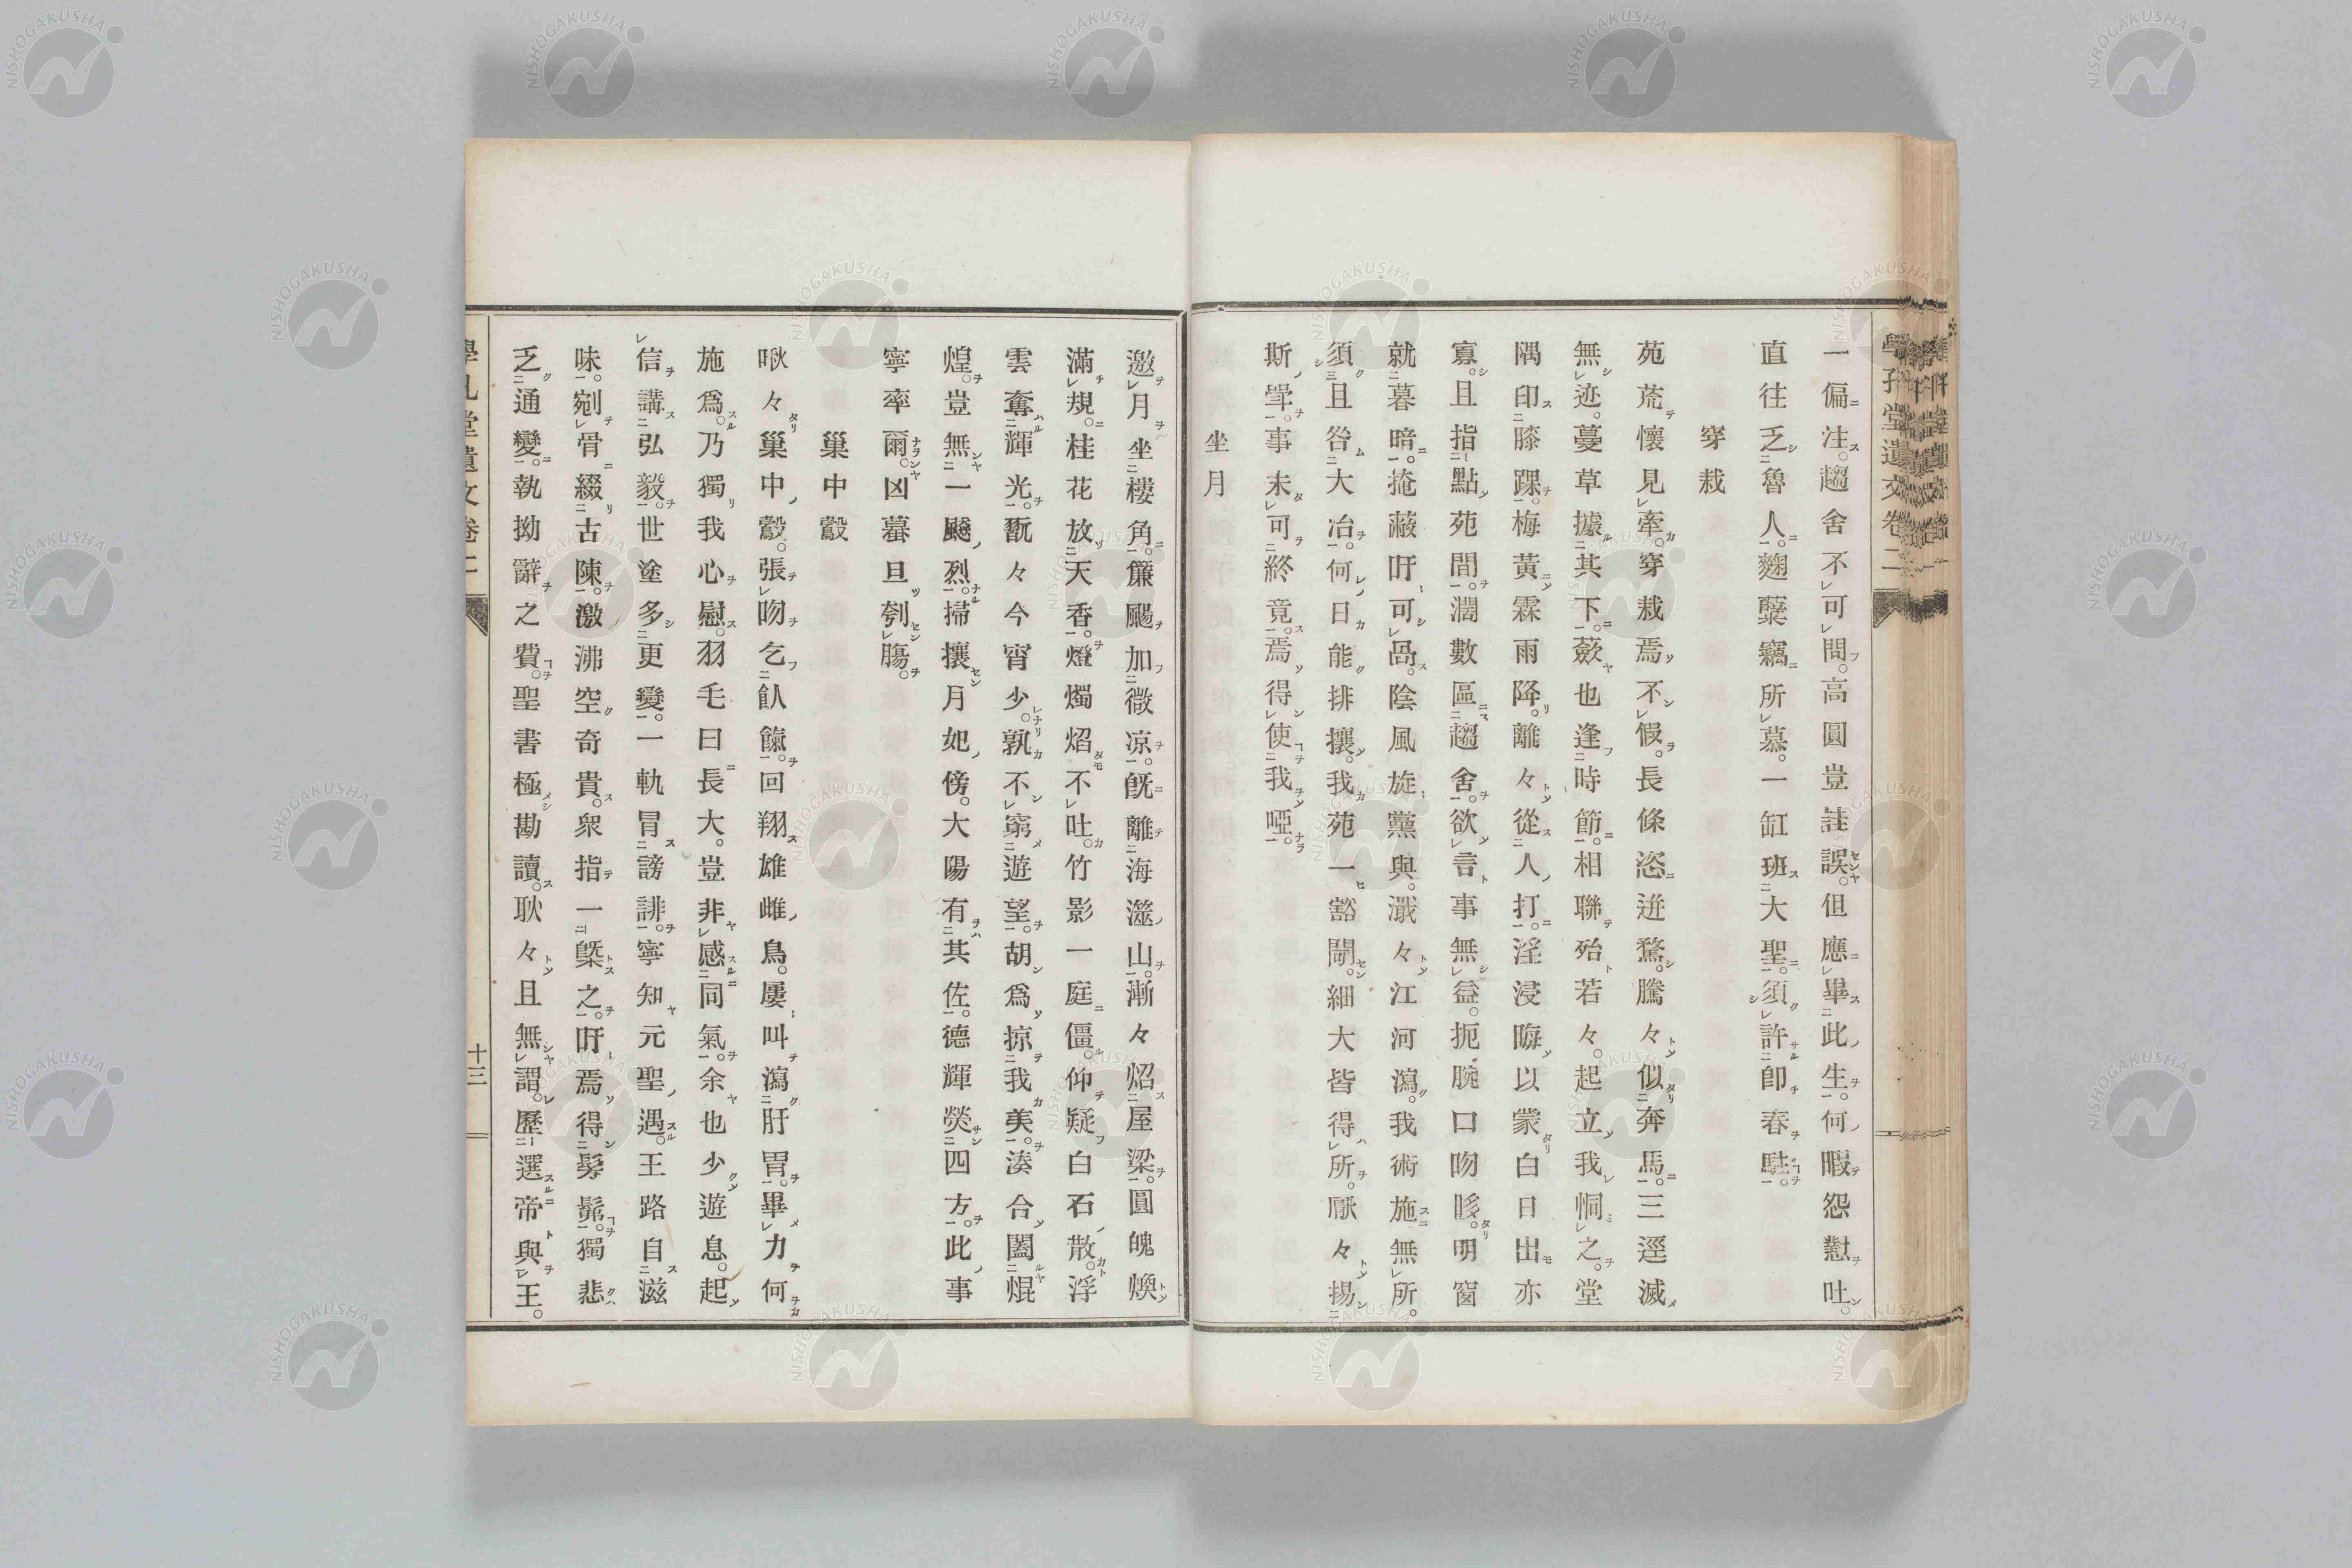 一偏注。趨舍不可問。高圓豈詿誤。但應畢此生。何暇怨懟吐。
直往乏魯人。麹櫱竊所慕。一缸班大聖。須許卽春駐。
穿栽
苑荒懷見牽。穿栽焉不假。長條恣迸騖。騰々似奔馬。三逕滅
無迹。蔓草據其下。蕨也逢時節。相聯殆若々。起立我恫之。堂
隅印膝踝。梅黃霖雨降。離々從人打。淫浸晦以蒙。白日出亦
寡。且指點苑間。濶數區趨舍。欲言事無益。扼腕口吻哆。明窗
就暮暗。掩蔽吁可咼。陰風旋薰與。濺々江河瀉。我術施無所。
須且咎大冶。何日能排攘。我苑一豁閜。細大皆得所。厭々揚
斯斝。事未可終竟。焉得使我啞。
坐月
邀月坐樓角。簾颺加微凉。旣離海澨山。漸々炤屋梁。圓魄煥
滿規。桂花放天香。燈燭焰不吐。竹影一庭僵。仰疑白石散。浮
雲奪輝光。翫々今宵少。孰不窮遊望。胡爲掠我美。湊合闔焜
煌。豈無一颷烈。掃攘月妃傍。大陽有其佐。德輝熒四方。此事
寧率爾。凶蟇旦刳腸。
巢中鷇
啾々巢中鷇。張吻乞飤餼。回翔雄雌鳥。屢叫瀉肝胃。畢力何
施爲。乃獨我心慰。羽毛曰長大。豈非感同氣。余也少遊息。起
信講弘毅。世塗多更變。一軌冒謗誹。寧知元聖遇。王路自滋
味。剜骨綴古陳。激沸空奇貴。衆指一槩之。吁焉得髣髴。獨悲
乏通變。執拗辭之費。聖書極勘讀。耿々且無謂。歷選帝與王。
十三